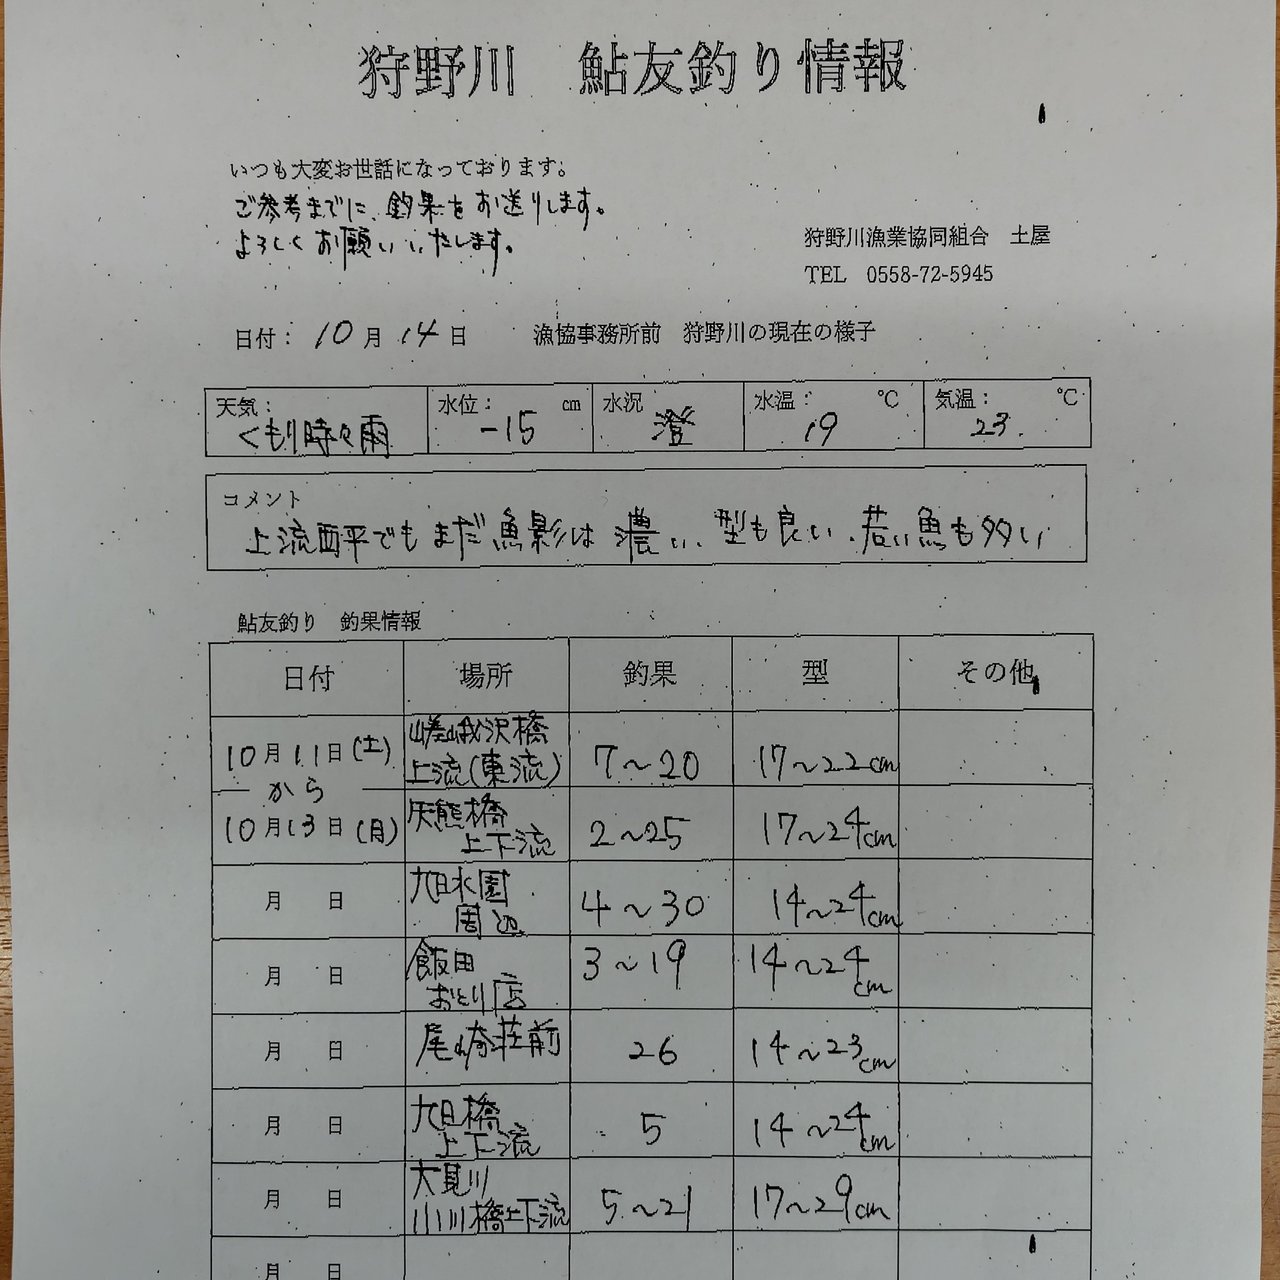 狩野川　鮎友釣り情報
いつも大変お世話になっております。
ご参考までに、釣果をお送りします。
よろしくお願いいたします。
狩野川漁業協同組合　土屋
TEL　0558-72-5945
日付：10月14日　漁協事務所前　狩野川の現在の様子
天気：　水位：　cm　水況　水温：　℃　気温：　℃
くもり時々雨　-15　澄　19　23
コメント
上流西平でもまだ魚影は濃い、型も良い、若い魚も多い
鮎友釣り　釣果情報
日付　場所　釣果　型　その他
10月11日(土)　嵯峨沢橋
上流(東流)　7～20　17～22cm
から
10月13日(月)　橋
上下流　2～25　17～24cm
月　日　水園
周辺　4～30　14～24cm
月　日　飯田
おとり店　3～19　14～24cm
月　日　尾崎荘前　26　14～23cm
月　日　橋
上下流　5　14～24cm
月　日　大見川
小川橋上下流　5～21　17～29cm
月　日